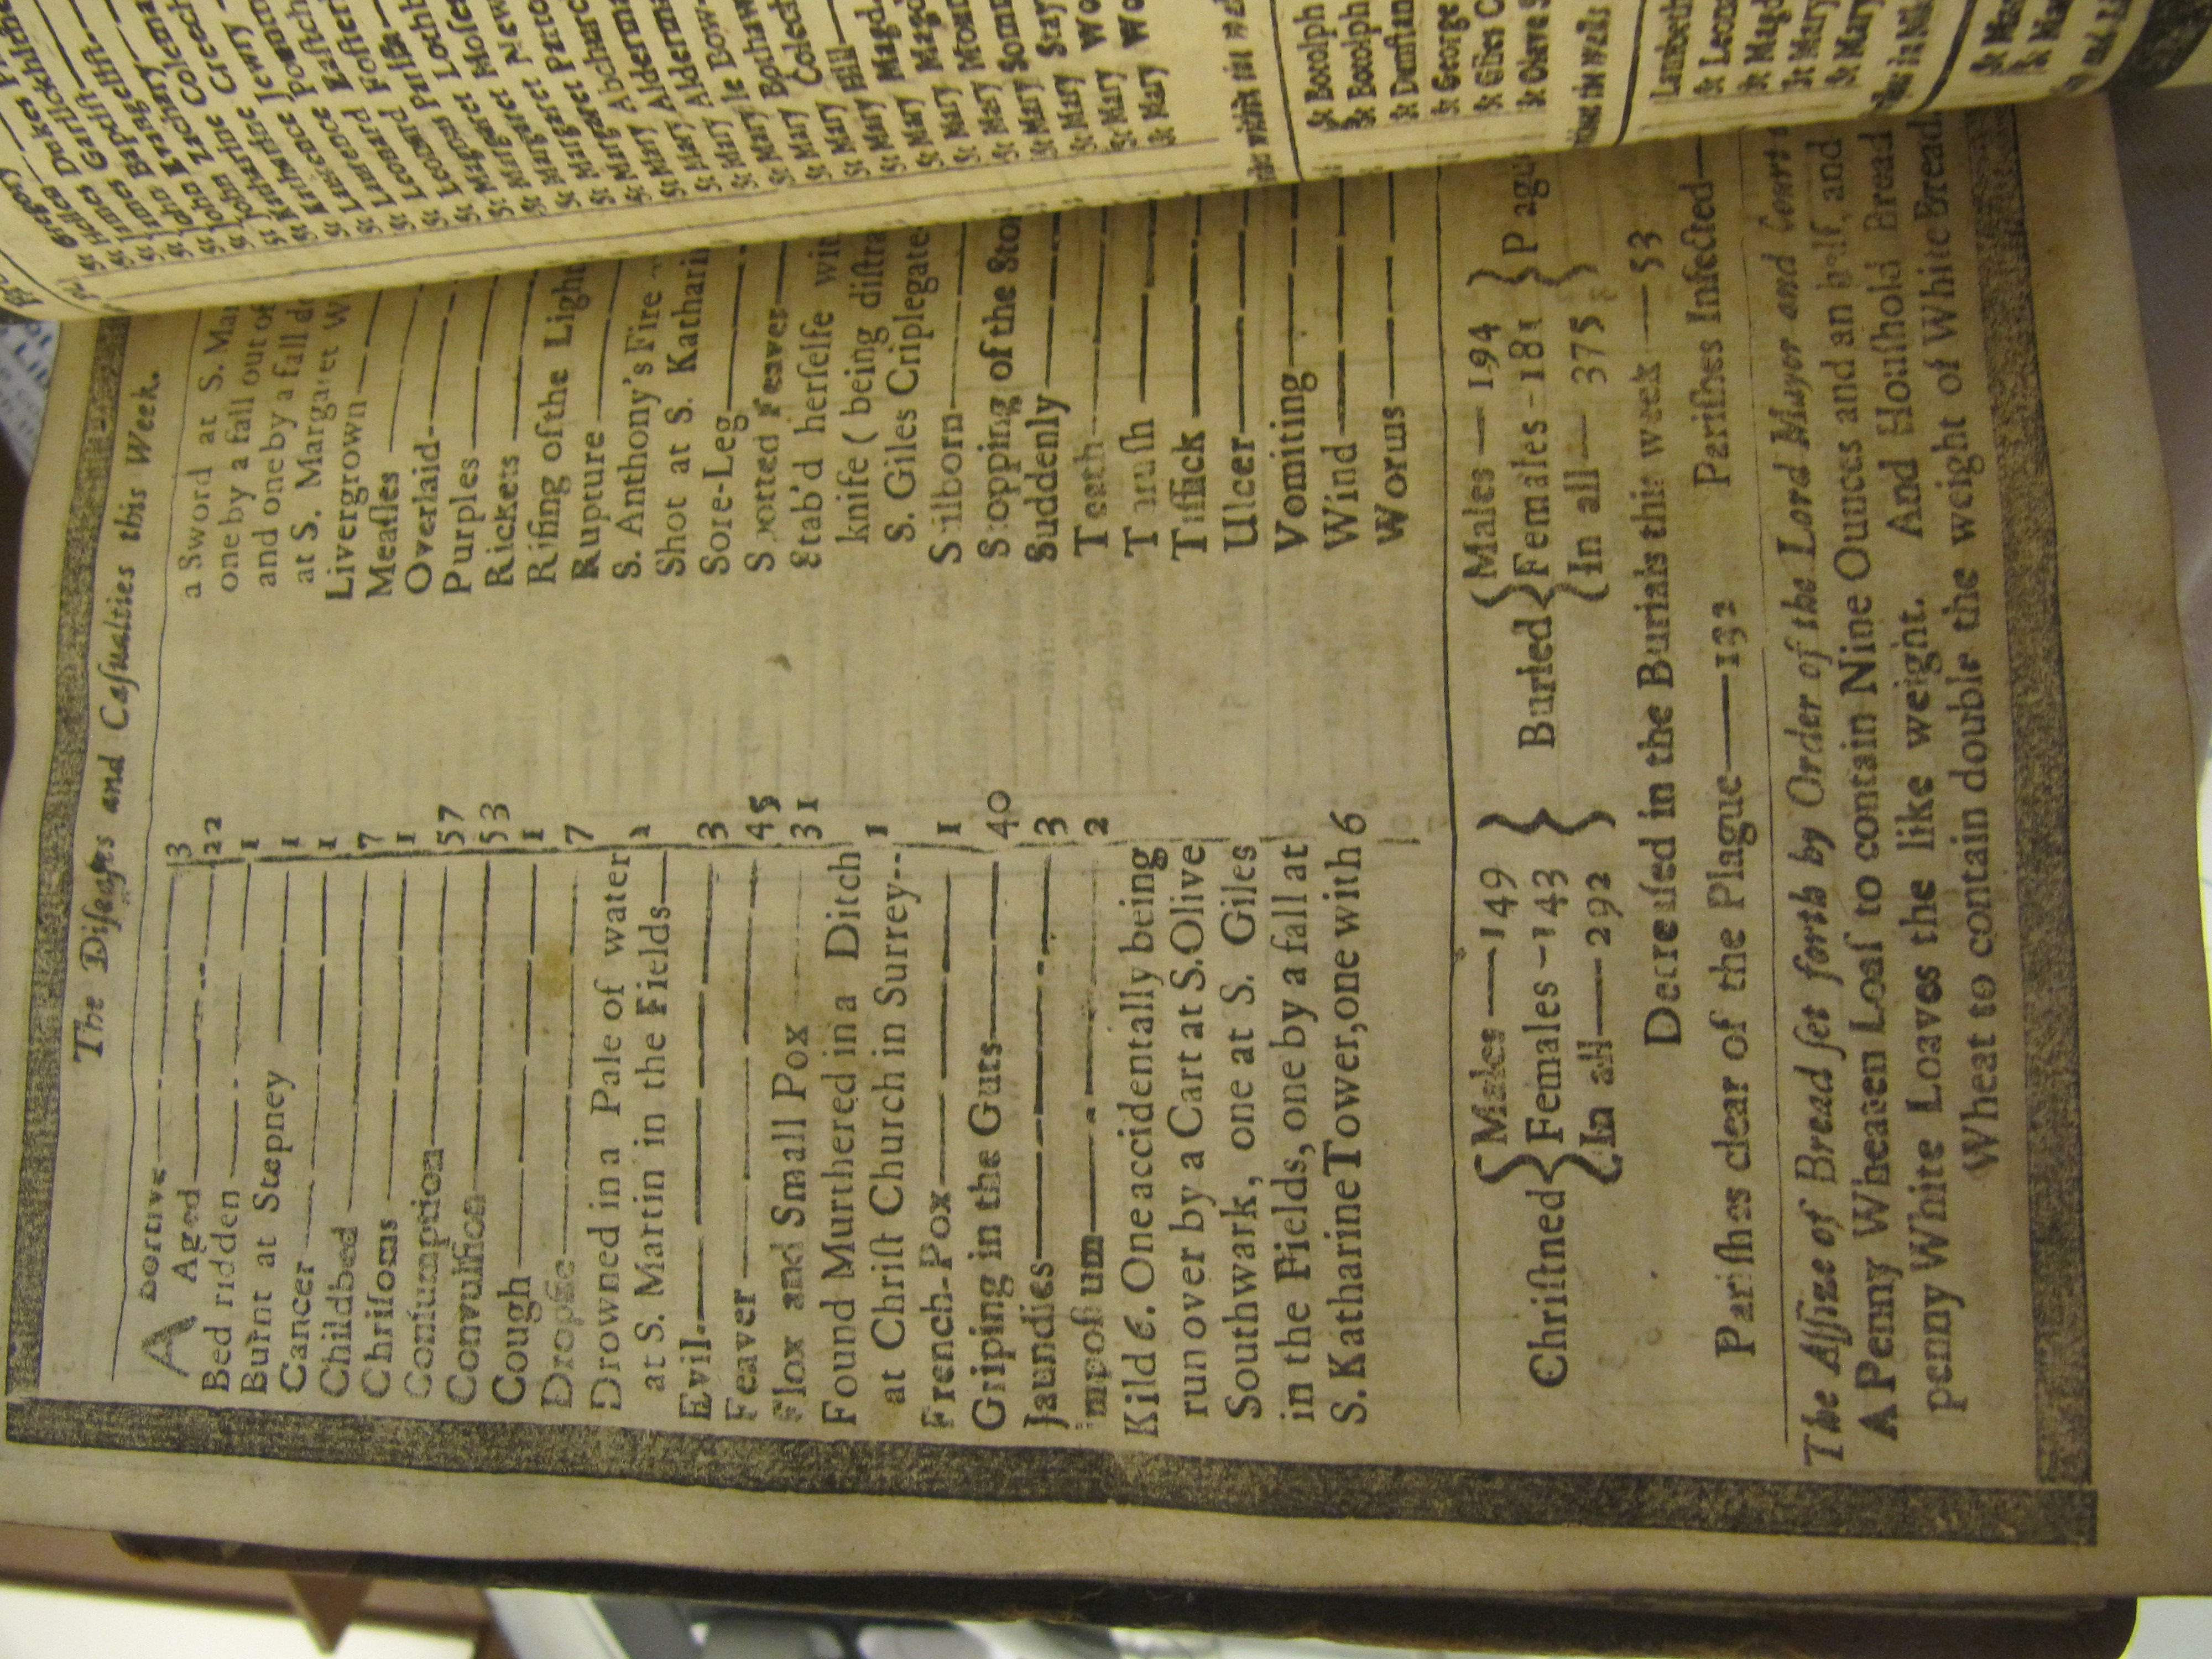 The Diſeaſes and Caſualties this Week.
ABortive 3
Aged 22
Bed ridden 1
Burnt at Stepney 1
Cancer 1
Childbed 7
Chriſoms 1
Conſumption 57
Convulſion 53
Cough 1
Dropſie 7
Drowned in a Pale of water
at S. Martin in the Fields 1
Evil 3
Feaver 45
Flox and Small Pox 31
Found Murthered in a Ditch
at Chriſt Church in Surrey-- 1
French-Pox 1
Griping in the Guts 40
Jaundies 3
Impoſtum 2
Kild 6. One accidentally being
run over by a Cart at S. Olive
Southwark, one at S. Giles
in the Fields, one by a fall at
S. Katharine Tower, one with 6
a Sword at S. Mar
one by a fall out of
and one by a fall do
at S. Margaret W
Livergrown
Meaſles
Overlaid
Purples
Rickets
Riſing of the Ligh
Rupture
S. Anthony's Fire
Shot at S. Katharin
Sore-Leg
Spotted Feaver
Stab'd herſelfe wit
knife ( being diſtra
S. Giles Criplegate
Stilborn
Stopping of the Sto
Suddenly
Teeth
Thruſh
Tiſſick
Ulcer
Vomiting
Wind
Worms
Chriſtned { Males — 149
Females - 143
In all — 292 }
Buried { Males — 194
Females - 181
In all — 375 } Plagu
Decreaſed in the Burials this week — 53
Pariſhes clear of the Plague — 132 Pariſhes Infected —
The Aſſize of Bread ſet forth by Order of the Lord Mayor and Court
A Penny Wheaten Loaf to contain Nine Ounces and an half, and
penny White Loaves the like weight. And Houſhold Bread
Wheat to contain double the weight of White Bread.
St Gregory
St Hellen
St James Dukes P
St James Garlickhith
St John Baptiſt
St John Evangeliſt
St John Zachary
St Katharine Colema
St Katharine Creech
St Lawrence Jewry
St Lawrence Pountn
St Leonard Eaſtch
St Leonard Foſter
St Magnus Pariſh
St Margaret Lothb
St Margaret Moſes
St Margaret New
St Margaret Patto
St Mary Abchurch
St Mary Alderma
St Mary Alderm
St Mary le Bow
St Mary Bothaw
St Mary Colech
St Mary Hill
St Mary Magd
St Mary Magd
St Mary Moun
St Mary Somm
St Mary Stay
St Mary Wo
St Mary Wo
St Botolph
St Botolph
St Dunſtan
St George
St Giles C
St Olave
Lambeth
St Leon
St Magd
St Mary
St Mary